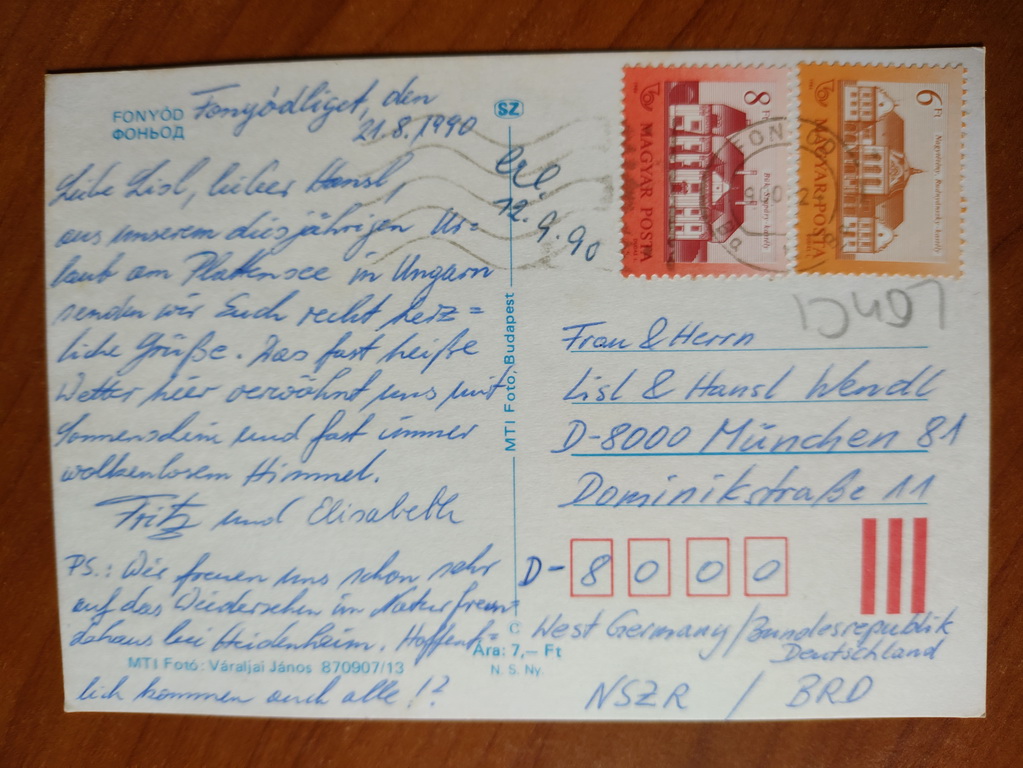 FONYÓD
ФОНЬОД
Fonyódliget, den
21.8.1990
Liebe Lisl, lieber Hansl,
aus unserem diesjährigen Ur-
laub am Plattensee in Ungarn
senden wir Euch recht herz=
liche Grüße. Das fast heiße
Wetter hier verwöhnt uns mit
Sonnenschein und fast immer
wolkenlosem Himmel.
Fritz und Elisabeth
PS.: Wir freuen uns schon sehr
auf das Wiedersehen im Naturfreun=
dehaus bei Heidenheim. Hoffent=
lich kommen auch alle!?
MTI Fotó: Váraljai János 870907/13
SZ
12.
9.90
MTI Fotó, Budapest
C
Ára: 7,– Ft
N. S. Ny.
8 Ft
MAGYAR POSTA
6 Ft
MAGYAR POSTA
LONCI
Frau & Herrn
Lisl & Hansl Wendl
D-8000 München 81
Dominikstraße 11
D- 8 0 0 0
West Germany/Bundesrepublik
Deutschland
NSZR / BRD